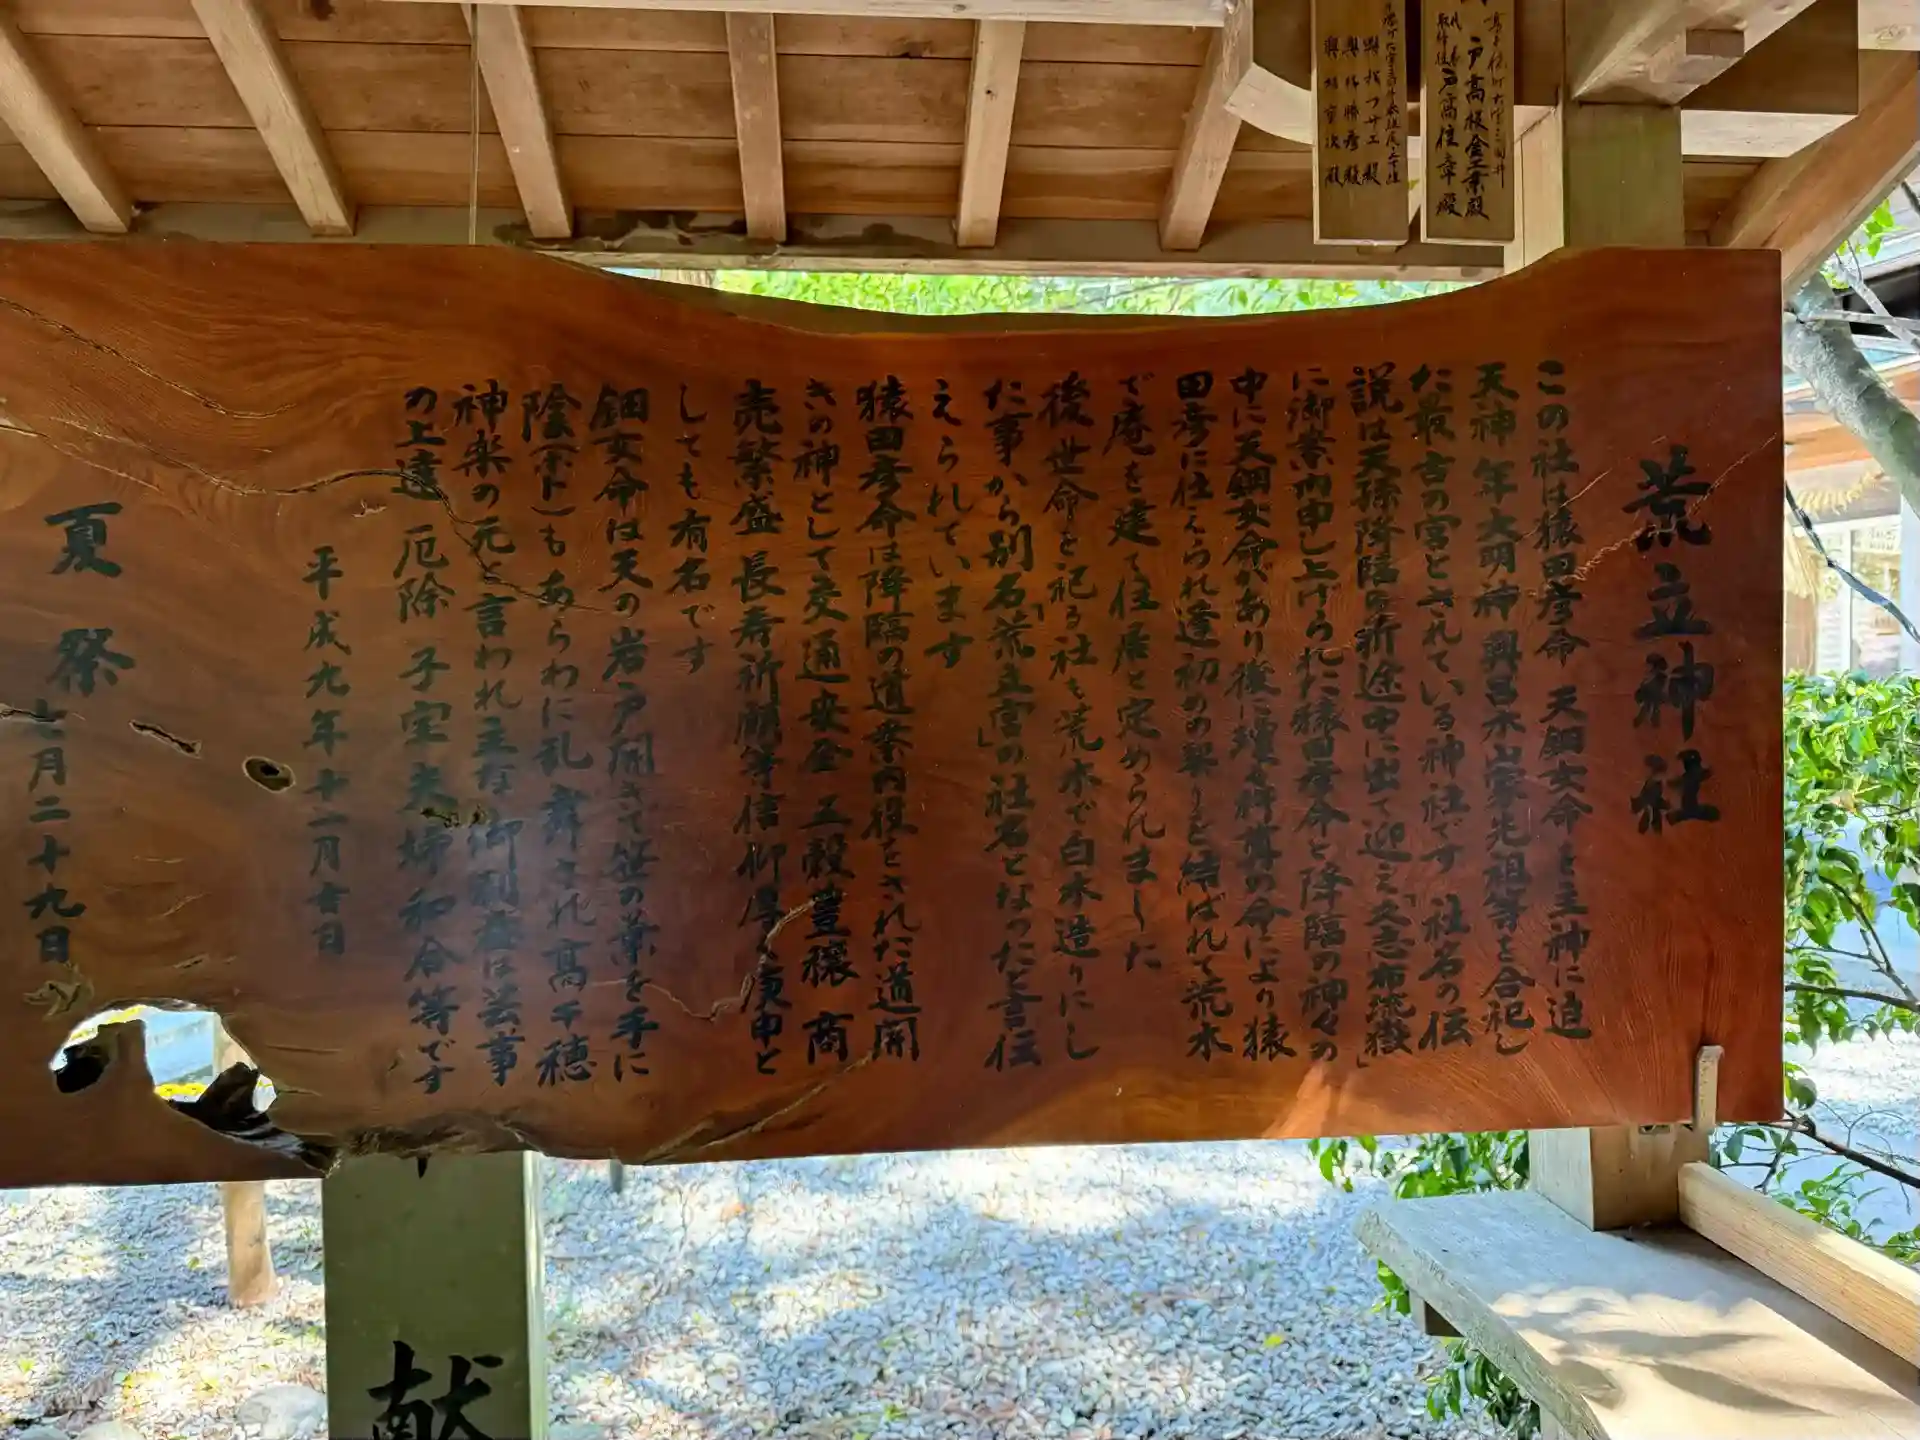 荒立神社
この社は猿田彦命 天鈿女命を主神に迫
天神年大明神興呂木山家先祖等を合祀し
た最古の宮とされている神社です 社名の伝
説は天孫降臨の折途中に出て迎え「久志布流嶽」
に御案内申し上げられた猿田彦命と降臨の神々の
中に天鈿女命があり後に瓊々杵尊の命により猿
田彦に仕えられ逢初めの契りを結ばれて荒木
で庵を建て住居と定められました
後世命を祀る社も荒木で白木造りにし
た事から別名「荒立宮」の社名となったと言伝
えられています
猿田彦命は降臨の道案内役をされた道開
きの神として交通安全 五穀豊穣 商
売繁盛 長寿祈願等信仰厚く庚申と
しても有名です
鈿女命は天の岩戸開きで笹の葉を手に
陰(ホト)もあらわに乱舞され高千穂
神楽の元と言われ主な御利益は芸事
の上達 厄除 子宝夫婦和合等です
平成九年十二月廿日
夏祭 七月二十九日
戸高板金工業殿
取付役 戸高住章殿
興梠フサエ殿
興梠勝彦殿
献